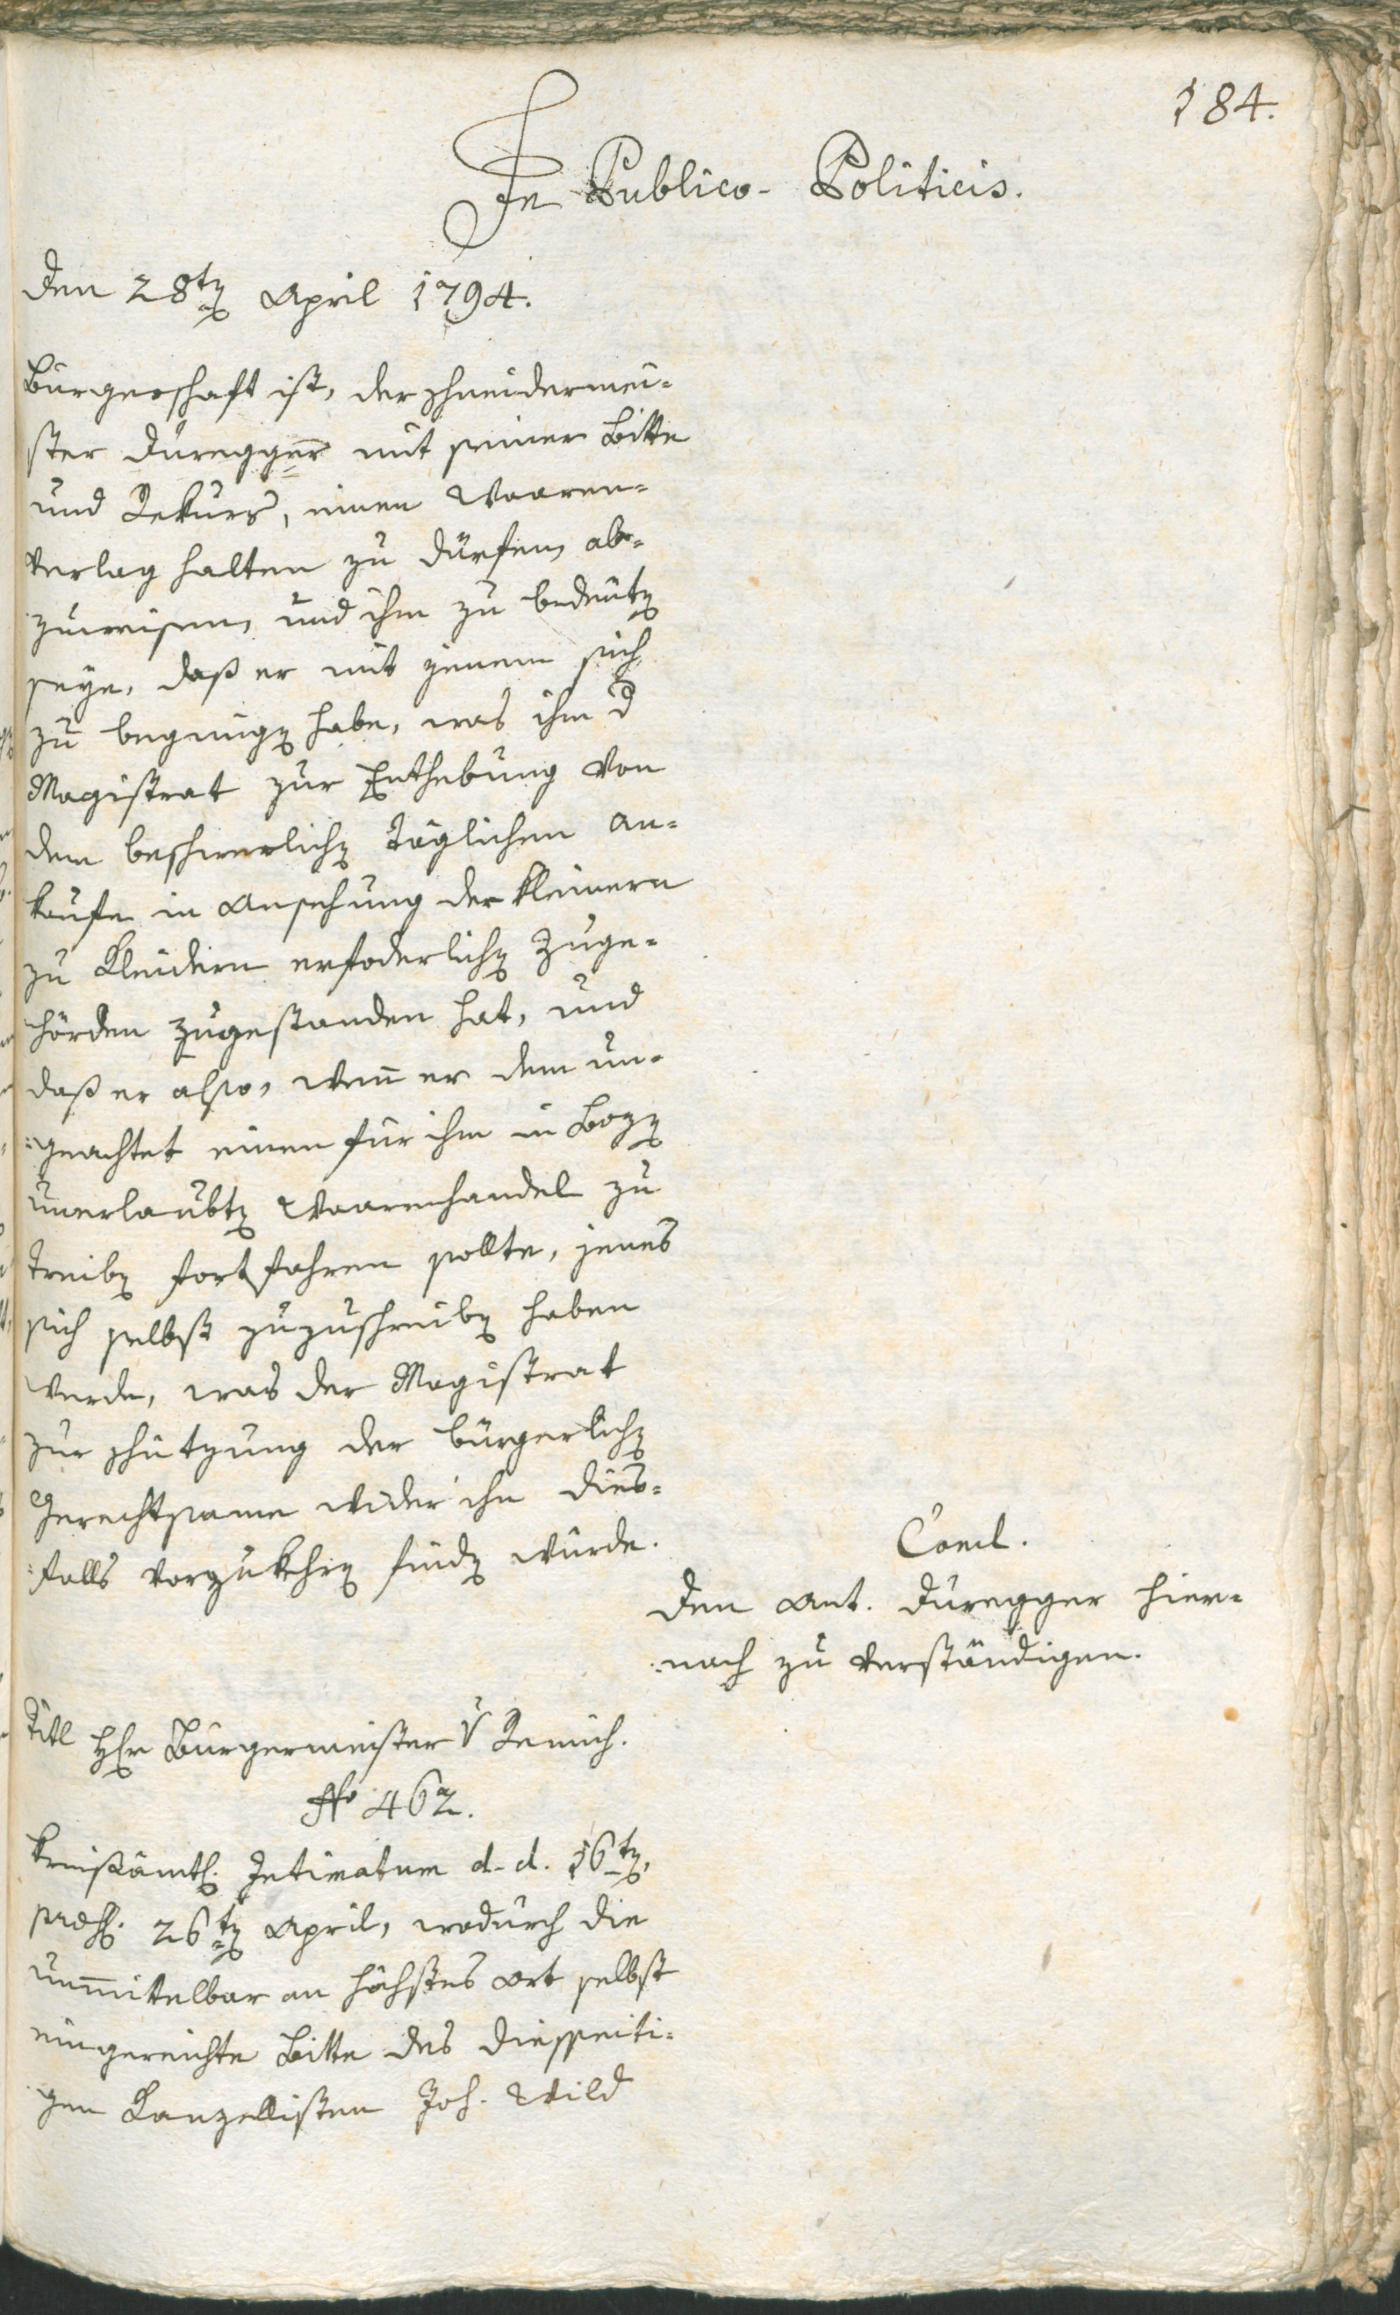 184.
In Publico-Politicis.
den 28ten April 1794.
Burgerschaft ist, der Schneidermei-
ster Duregger mit seiner Bitte
und Rekurs, einen Waaren-
verlag halten zu därfen, ab-
zuweisen, und ihm zu bedeuten
seye, daß er mit jenem sich
zu begnügen habe, was ihm d
Magistrat zur Enthebung von
dem beschwerlichen täglichen An-
kaufe in Ansehung der kleinern
zu Kleidern erfoderlichen Zuge-
hörden zugestanden hat, und
daß er also, wenn er dem un-
geachtet einen für ihm in Bozen
unerlaubten Waarenhandel zu
treiben fortfahren sollte, jenes
sich selbst zuzuschreiben haben
werde, was der Magistrat
zur Schützung der bürgerlichen
Gerechtsame wider ihn dies-
falls vorzukehren finden würde.
Concl.
Den Ant. Duregger hier-
nach zu verständigen.
Titl Hr Burgermeister v Remich.
No 462.
Kreisämtl. Intimatum d. d. 16ten,
præs. 26ten April, wodurch die
unmittelbar an höchstes Ort selbst
eingereichte Bitte des diesseiti-
gen Kanzellisten Joh. Wild